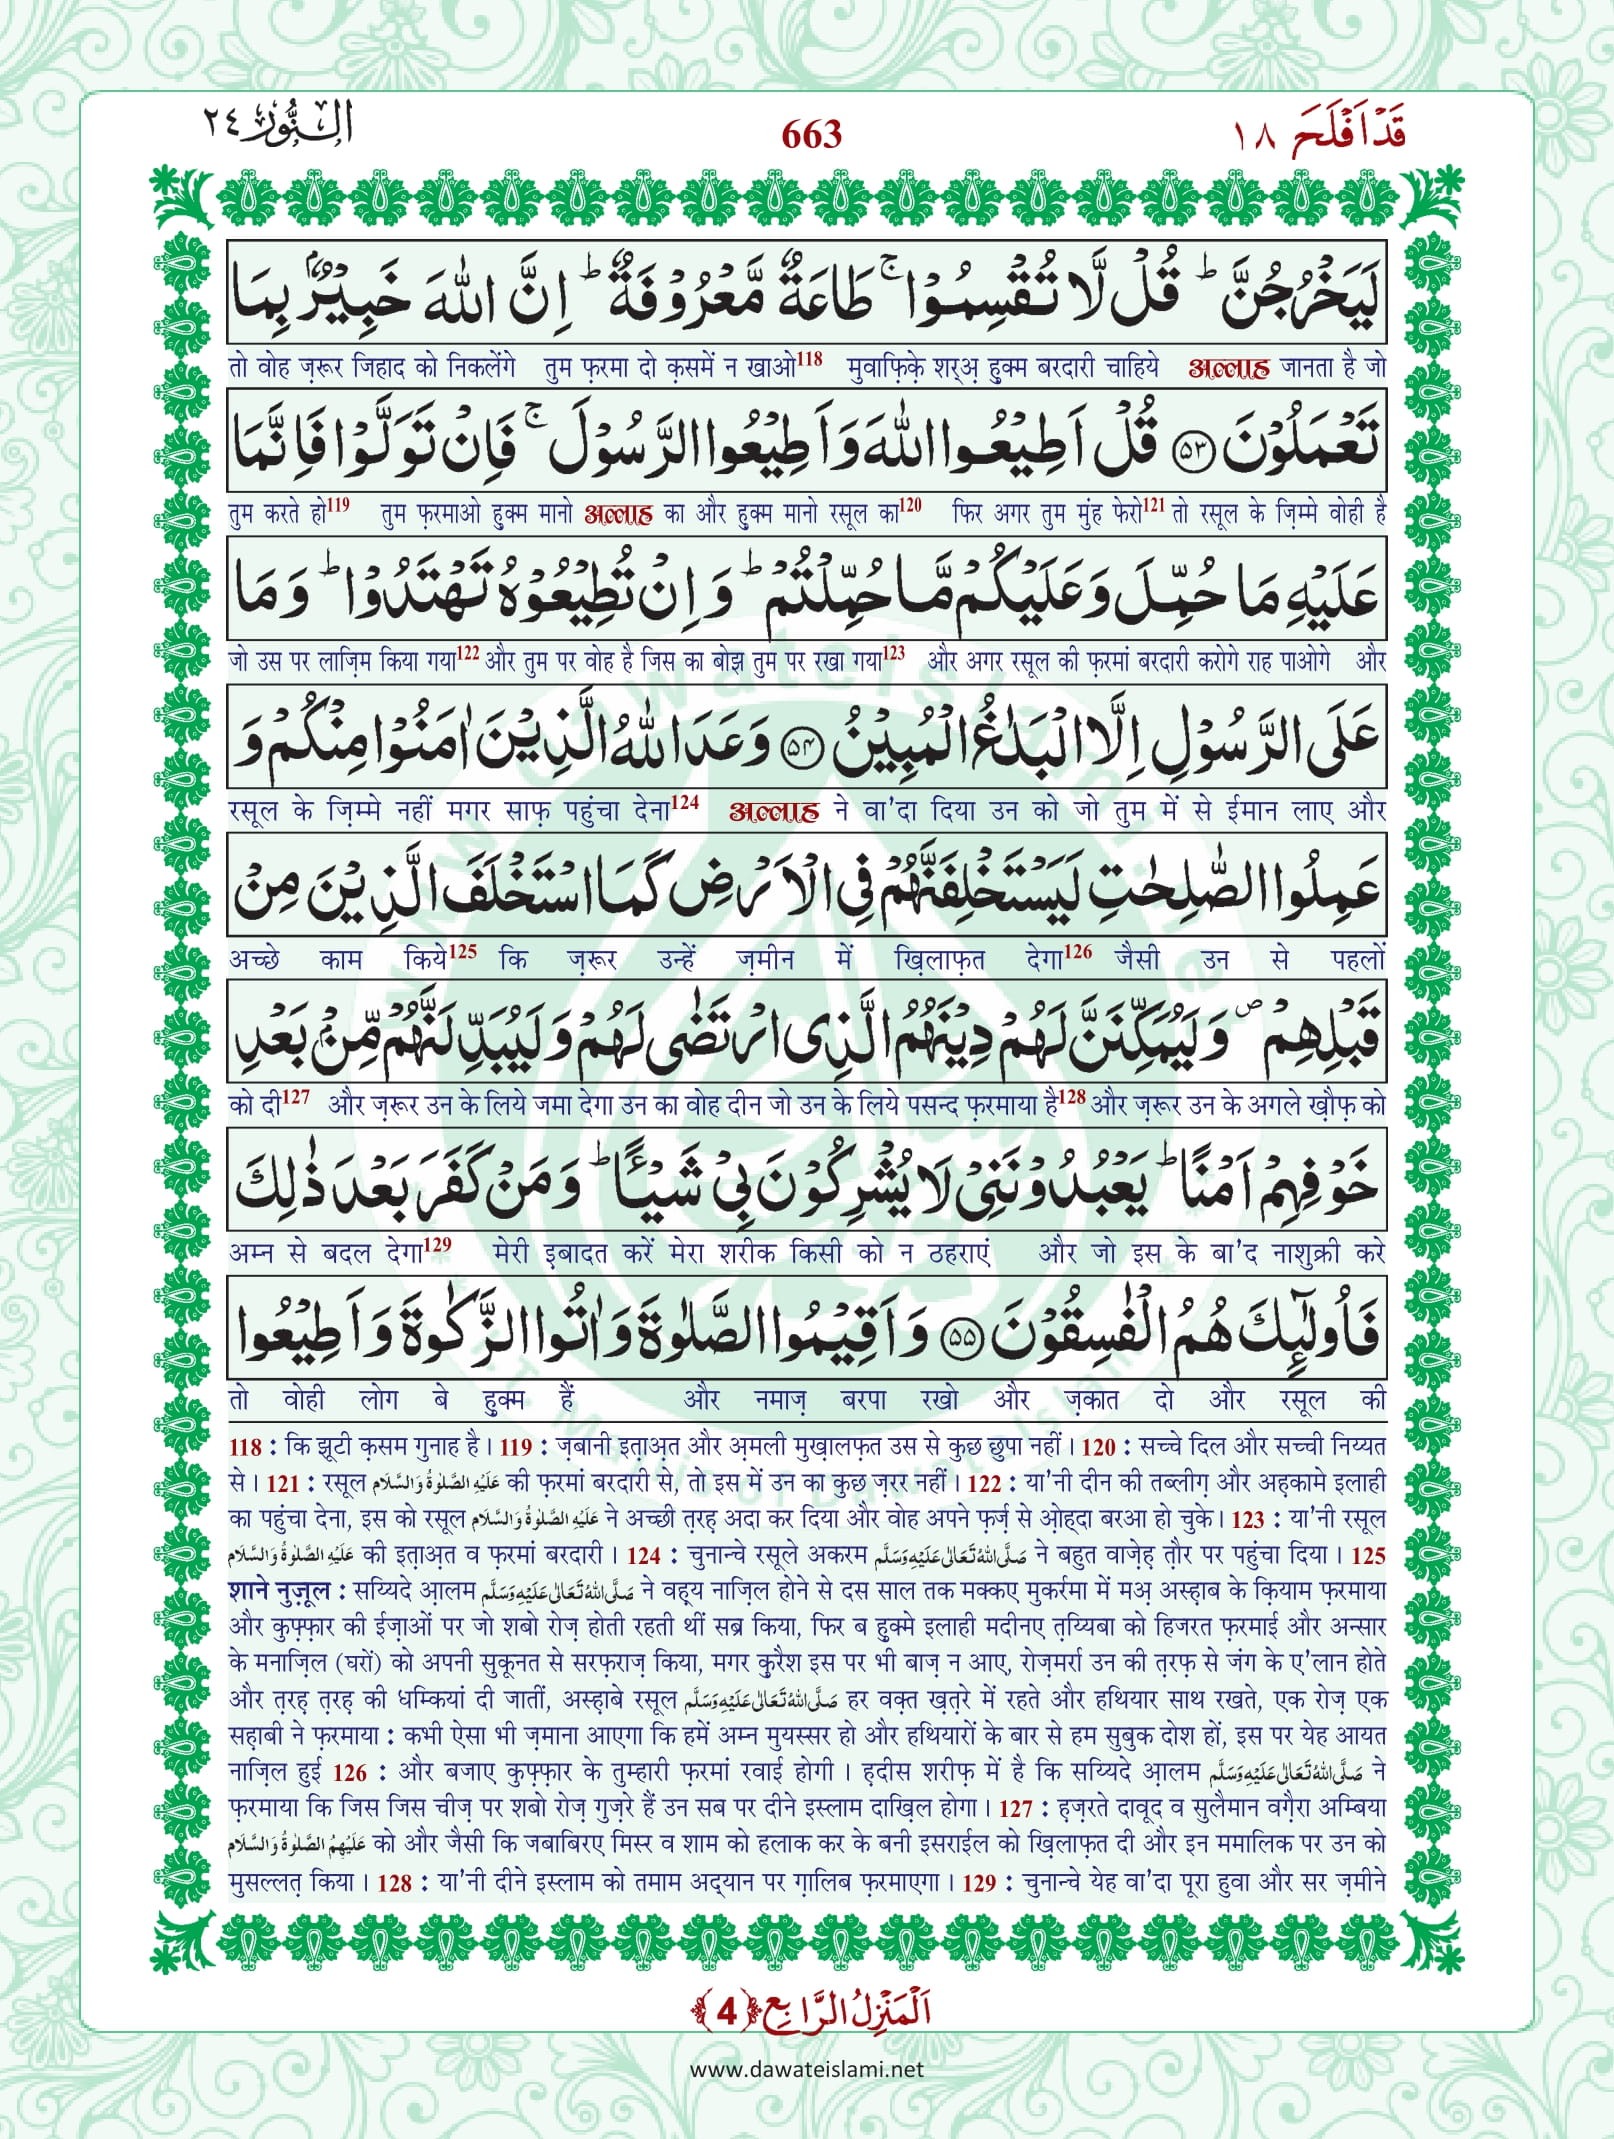 قَدْ اَفْلَحَ ١٨
663
اَلنُّوْر ٢٤
لَيَخْرُجُنَّ ؕ قُلْ لَّا تُقْسِمُوْا ۚ طَاعَةٌ مَّعْرُوْفَةٌ ؕ اِنَّ اللّٰهَ خَبِيْرٌۢ بِمَا
तो वोह ज़रूर जिहाद को निकलेंगे तुम फ़रमा दो क़समें न खाओ118 मुवाफ़िक़े शर्अ़ हुक्म बरदारी चाहिये अल्लाह जानता है जो
تَعْمَلُوْنَ ﴿۵۳﴾ قُلْ اَطِيْعُوا اللّٰهَ وَ اَطِيْعُوا الرَّسُوْلَ ۚ فَاِنْ تَوَلَّوْا فَاِنَّمَا
तुम करते हो119 तुम फ़रमाओ हुक्म मानो अल्लाह का और हुक्म मानो रसूल का120 फिर अगर तुम मुंह फेरो121 तो रसूल के ज़िम्मे वोही है
عَلَيْهِ مَا حُمِّلَ وَ عَلَيْكُمْ مَّا حُمِّلْتُمْ ؕ وَ اِنْ تُطِيْعُوْهُ تَهْتَدُوْا ؕ وَ مَا
जो उस पर लाज़िम किया गया122 और तुम पर वोह है जिस का बोझ तुम पर रखा गया123 और अगर रसूल की फ़रमां बरदारी करोगे राह पाओगे और
عَلَى الرَّسُوْلِ اِلَّا الْبَلٰغُ الْمُبِيْنُ ﴿۵۴﴾ وَعَدَ اللّٰهُ الَّذِيْنَ اٰمَنُوْا مِنْكُمْ وَ
रसूल के ज़िम्मे नहीं मगर साफ़ पहुंचा देना124 अल्लाह ने वा'दा दिया उन को जो तुम में से ईमान लाए और
عَمِلُوا الصّٰلِحٰتِ لَيَسْتَخْلِفَنَّهُمْ فِي الْاَرْضِ كَمَا اسْتَخْلَفَ الَّذِيْنَ مِنْ
अच्छे काम किये125 कि ज़रूर उन्हें ज़मीन में ख़िलाफ़त देगा126 जैसी उन से पहलों
قَبْلِهِمْ ۪ وَ لَيُمَكِّنَنَّ لَهُمْ دِيْنَهُمُ الَّذِي ارْتَضٰى لَهُمْ وَ لَيُبَدِّلَنَّهُمْ مِّنْۢ بَعْدِ
को दी127 और ज़रूर उन के लिये जमा देगा उन का वोह दीन जो उन के लिये पसन्द फ़रमाया है128 और ज़रूर उन के अगले ख़ौफ़ को
خَوْفِهِمْ اَمْنًا ؕ يَعْبُدُوْنَنِيْ لَا يُشْرِكُوْنَ بِيْ شَيْـًٔا ؕ وَ مَنْ كَفَرَ بَعْدَ ذٰلِكَ
अम्न से बदल देगा129 मेरी इबादत करें मेरा शरीक किसी को न ठहराएं और जो इस के बा'द नाशुक्री करे
فَاُولٰٓئِكَ هُمُ الْفٰسِقُوْنَ ﴿۵۵﴾ وَ اَقِيْمُوا الصَّلٰوةَ وَ اٰتُوا الزَّكٰوةَ وَ اَطِيْعُوا
तो वोही लोग बे हुक्म हैं और नमाज़ बरपा रखो और ज़कात दो और रसूल की
118 : कि झूटी क़सम गुनाह है। 119 : ज़बानी इत़ाअ़त और अ़मली मुख़ालफ़त उस से कुछ छुपा नहीं। 120 : सच्चे दिल और सच्ची निय्यत
से। 121 : रसूल عَلَيْهِ الصَّلٰوةُ وَالسَّلَام की फ़रमां बरदारी से, तो इस में उन का कुछ ज़रर नहीं। 122 : या'नी दीन की तब्लीग़ और अह़कामे इलाही
का पहुंचा देना, इस को रसूल عَلَيْهِ الصَّلٰوةُ وَالسَّلَام ने अच्छी त़रह़ अदा कर दिया और वोह अपने फ़र्ज़ से ओ़ह्दा बरआ हो चुके। 123 : या'नी रसूल
عَلَيْهِ الصَّلٰوةُ وَالسَّلَام की इत़ाअ़त व फ़रमां बरदारी। 124 : चुनान्चे रसूले अकरम صَلَّى اللّٰهُ تَعَالٰى عَلَيْهِ وَسَلَّم ने बहुत वाज़ेह़ त़ौर पर पहुंचा दिया। 125
शाने नुज़ूल : सय्यिदे आ़लम صَلَّى اللّٰهُ تَعَالٰى عَلَيْهِ وَسَلَّم ने वह़्य नाज़िल होने से दस साल तक मक्कए मुकर्रमा में मअ़ अस्ह़ाब के क़ियाम फ़रमाया
और कुफ़्फ़ार की ईज़ाओं पर जो शबो रोज़ होती रहती थीं सब्र किया, फिर ब हुक्मे इलाही मदीनए त़य्यिबा को हिजरत फ़रमाई और अन्सार
के मनाज़िल (घरों) को अपनी सुकूनत से सरफ़राज़ किया, मगर क़ुरैश इस पर भी बाज़ न आए, रोज़मर्रा उन की त़रफ़ से जंग के ए'लान होते
और त़रह़ त़रह़ की धम्कियां दी जातीं, अस्ह़ाबे रसूल صَلَّى اللّٰهُ تَعَالٰى عَلَيْهِ وَسَلَّم हर वक़्त ख़त़रे में रहते और हथियार साथ रखते, एक रोज़ एक
सह़ाबी ने फ़रमाया : कभी ऐसा भी ज़माना आएगा कि हमें अम्न मुयस्सर हो और हथियारों के बार से हम सुबुक दोश हों, इस पर येह आयत
नाज़िल हुई 126 : और बजाए कुफ़्फ़ार के तुम्हारी फ़रमां रवाई होगी। ह़दीस शरीफ़ में है कि सय्यिदे आ़लम صَلَّى اللّٰهُ تَعَالٰى عَلَيْهِ وَسَلَّم ने
फ़रमाया कि जिस जिस चीज़ पर शबो रोज़ गुज़रे हैं उन सब पर दीने इस्लाम दाख़िल होगा। 127 : ह़ज़रते दावूद व सुलैमान वग़ैरा अम्बिया
عَلَيْهِمُ الصَّلٰوةُ وَالسَّلَام को और जैसी कि जबाबिरए मिस्र व शाम को हलाक कर के बनी इसराईल को ख़िलाफ़त दी और इन ममालिक पर उन को
मुसल्लत़ किया। 128 : या'नी दीने इस्लाम को तमाम अद्यान पर ग़ालिब फ़रमाएगा। 129 : चुनान्चे येह वा'दा पूरा हुवा और सर ज़मीने
اَلْمَنْزِلُ الرَّابِع ﴿4﴾
www.dawateislami.net